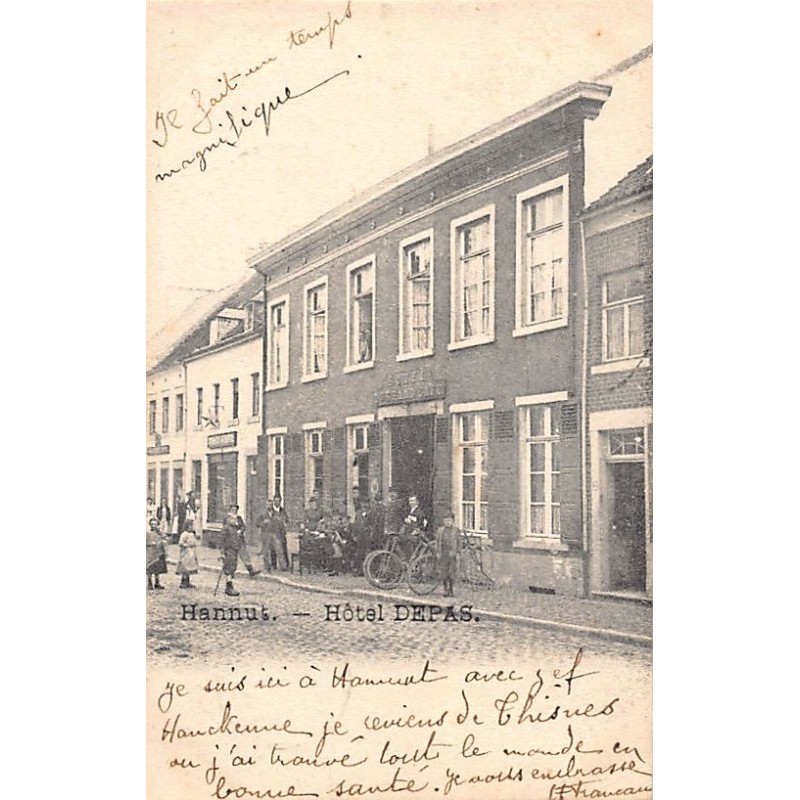 Je fait un temps
magnifique.
HÔTEL
Hannut. — Hôtel DEPAS.
Je suis ici à Hannut avec
Hanckenne je reviens de Thisnes
ou j'ai trouvé tout le monde en
bonne santé. Je vous embrasse